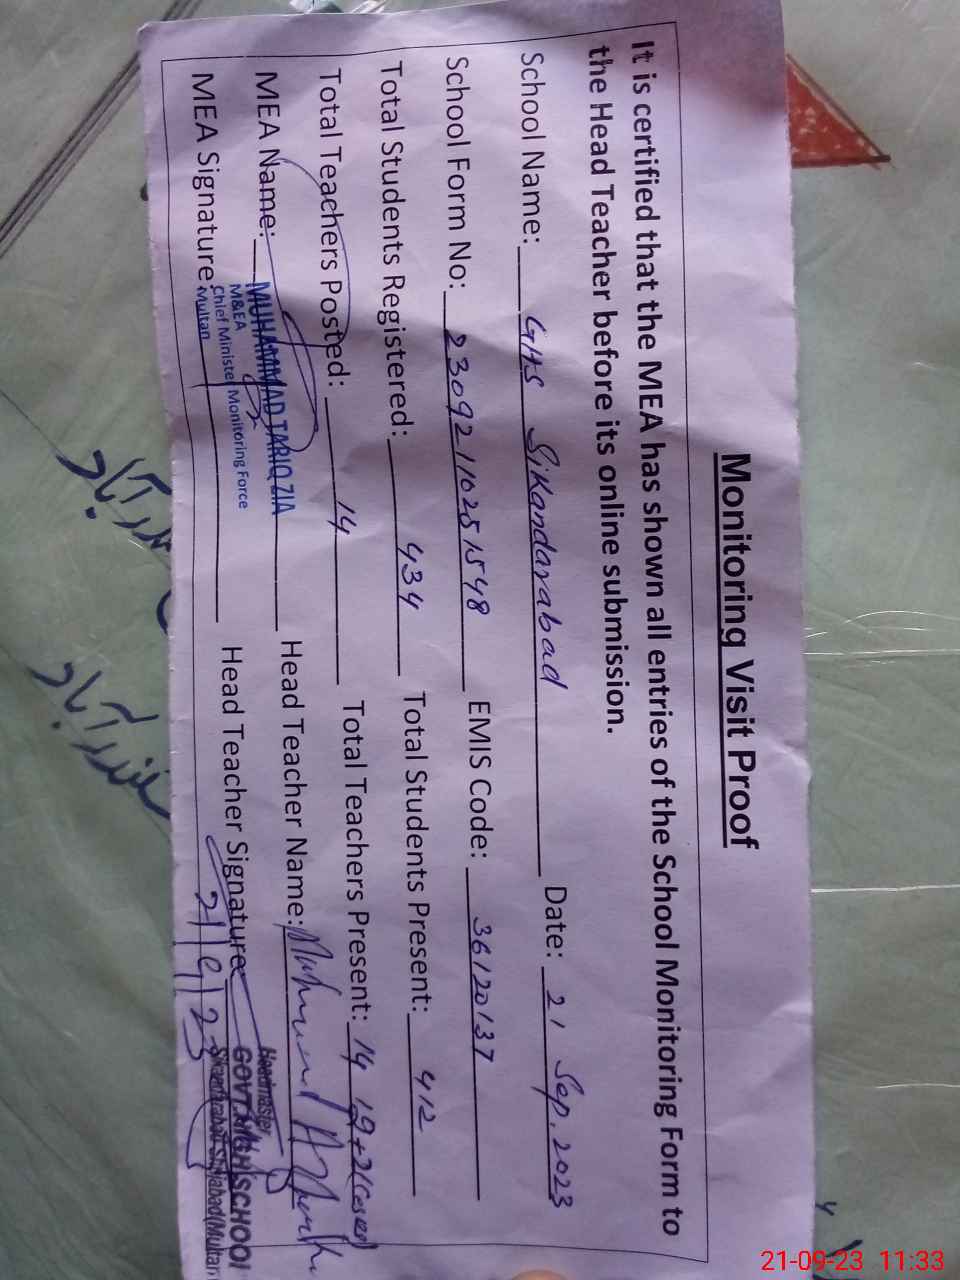 Monitoring Visit Proof
It is certified that the MEA has shown all entries of the School Monitoring Form to
the Head Teacher before its online submission.
School Name: GHS Sikandarabad Date: 21 Sep. 2023
School Form No: 23092110251548 EMIS Code: 36120137
Total Students Registered: 434 Total Students Present: 412
Total Teachers Posted: 14 Total Teachers Present: 14
MEA Name: MUHAMMAD TARIQ ZIA Head Teacher Name:
M&EA
Chief Minister Monitoring Force
Multan
MEA Signature: Head Teacher Signature
21/9/23
Headmaster
GOVT. HIGH SCHOOL
Sikandarabad Shujabad (Multan
سکندرآباد
21-09-23 11:33